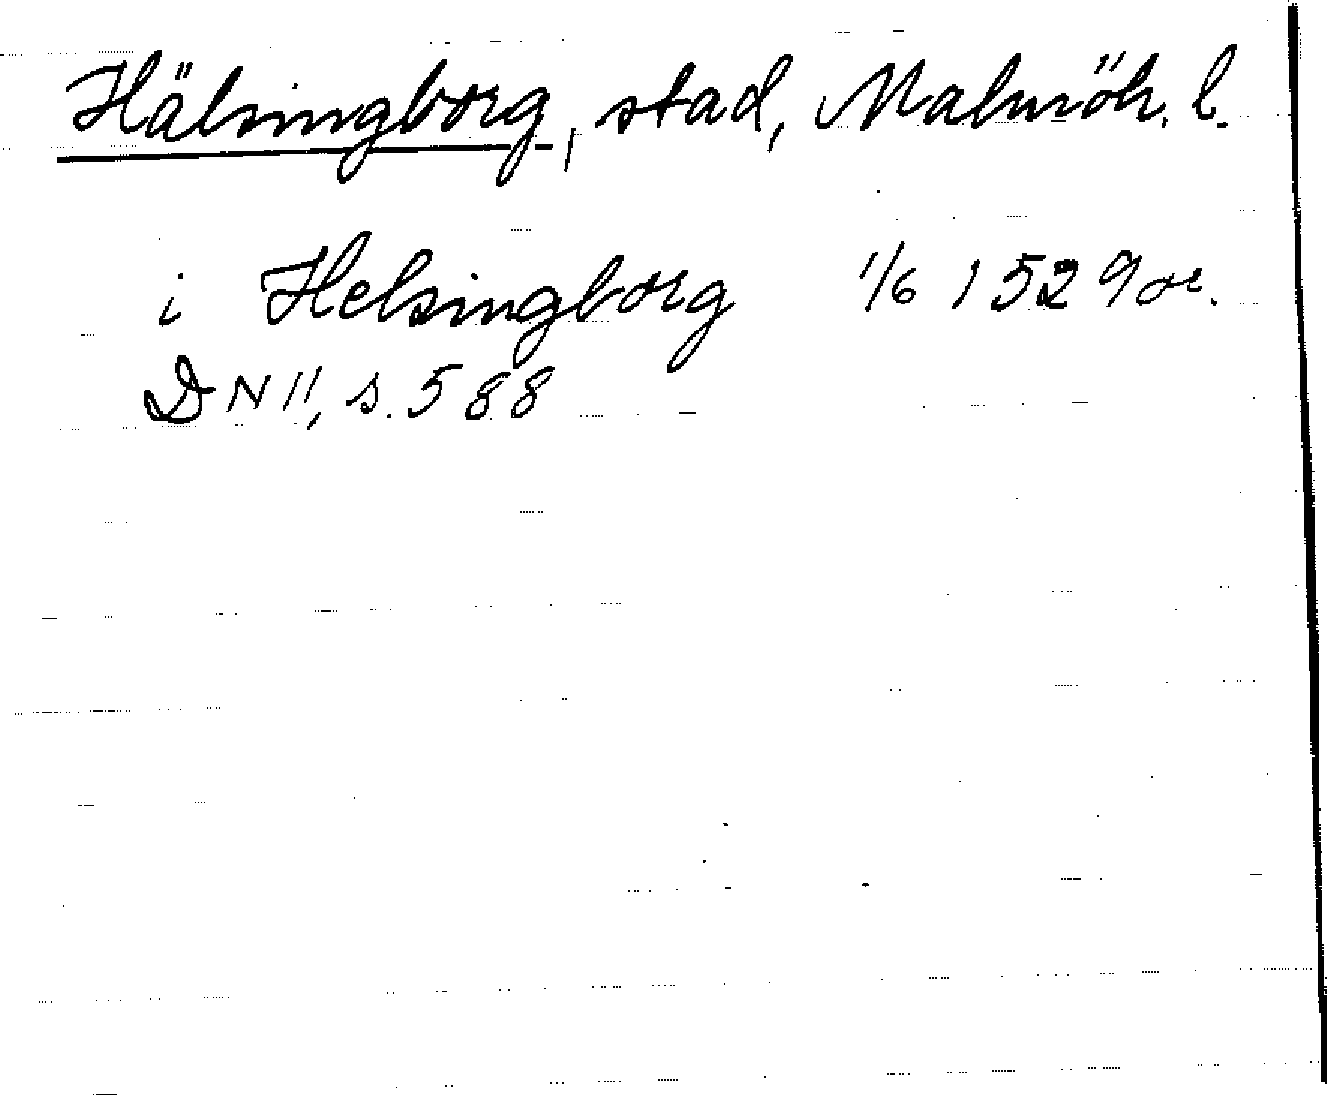 Hälsingborg, stad, Malmöh. l.
i Helsingborg 1/6 1529 or.
DN II, s. 588